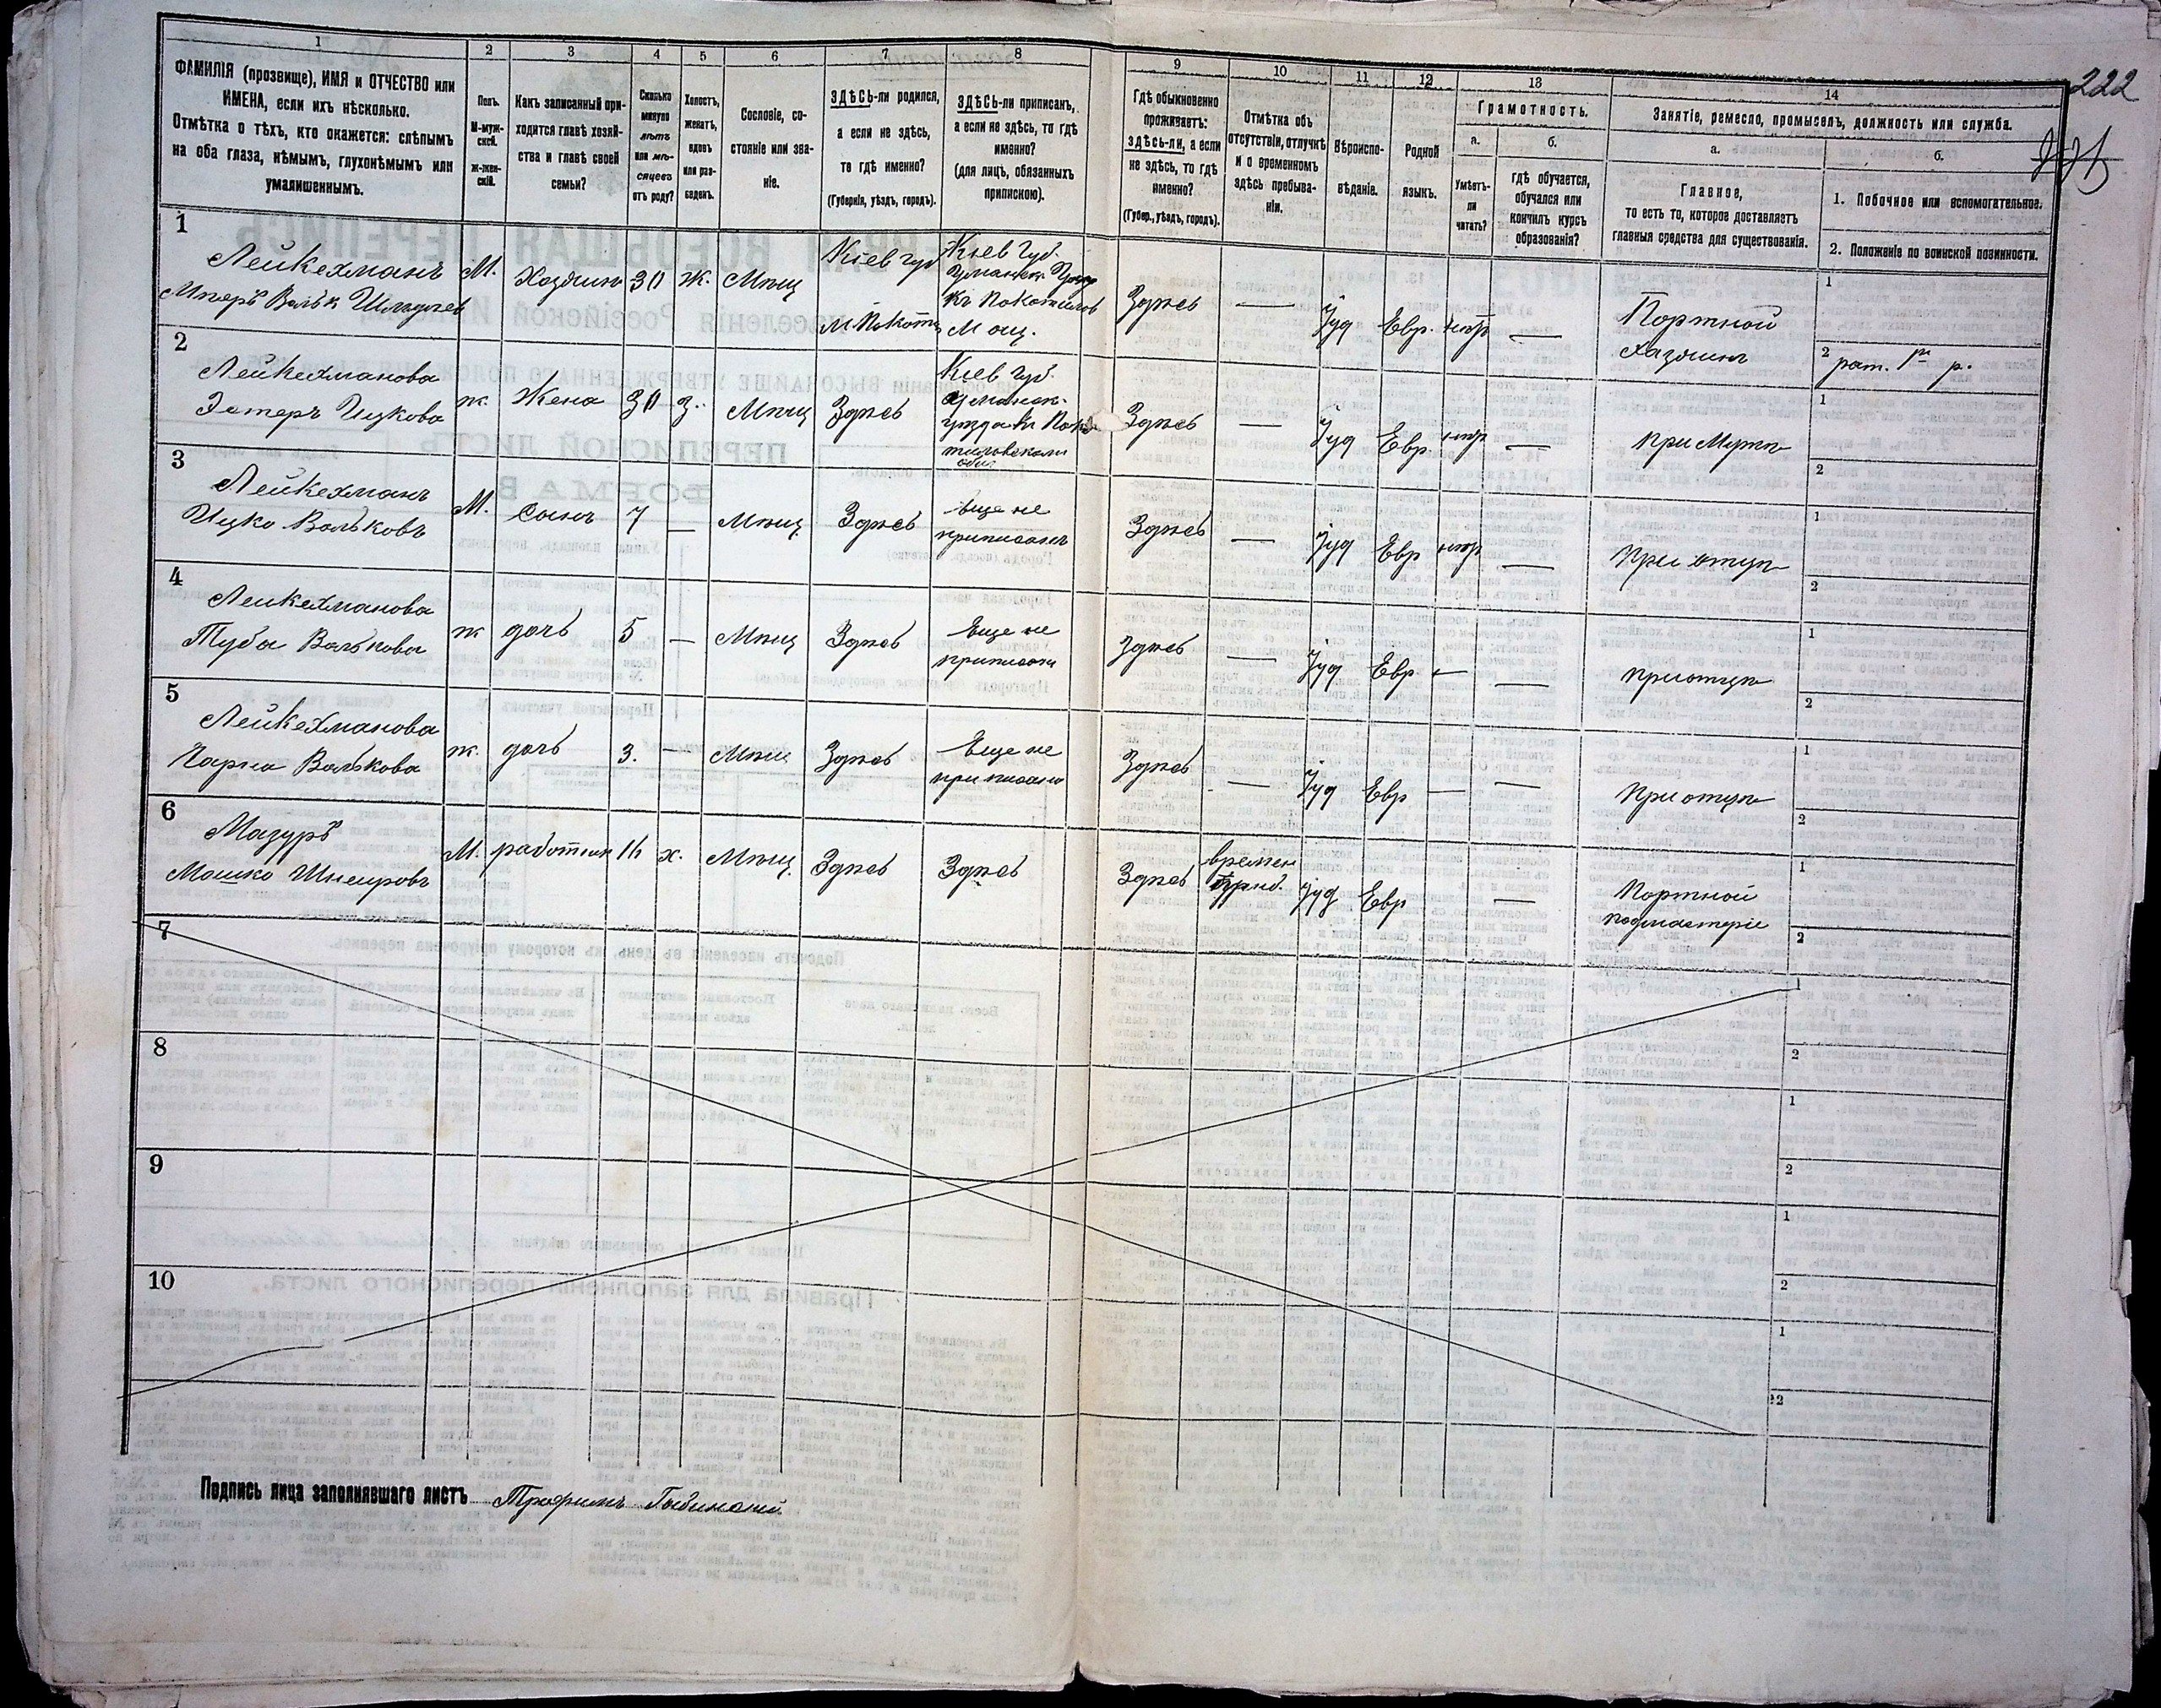 222
1 2 3 4 5 6 7 8 9 10 11 12 13 14
ФАМИЛІЯ (прозвище), ИМЯ и ОТЧЕСТВО или
ИМЕНА, если ихъ нѣсколько.
Отмѣтка о тѣхъ, кто окажется: слѣпымъ
на оба глаза, нѣмымъ, глухонѣмымъ или
умалишеннымъ.
Полъ.
М-муж-
ской.
Ж-жен-
скій.
Какъ записанный при-
ходится главѣ хозяй-
ства и главѣ своей
семьи?
Сколько
минуло
лѣтъ
или мѣ-
сяцевъ
отъ роду?
Холостъ,
женатъ,
вдовъ
или раз-
веденъ.
Сословіе, со-
стояніе или зва-
ніе.
ЗДѢСЬ-ли родился,
а если не здѣсь,
то гдѣ именно?
(Губернія, уѣздъ, городъ).
ЗДѢСЬ-ли приписанъ,
а если не здѣсь, то гдѣ
именно?
(для лицъ, обязанныхъ
припискою).
Гдѣ обыкновенно
проживаетъ:
ЗДѢСЬ-ли, а если
не здѣсь, то гдѣ
именно?
(Губер., уѣздъ, городъ).
Отмѣтка объ
отсутствіи, отлучкѣ
и о временномъ
здѣсь пребыва-
ніи.
Вѣроиспо-
вѣданіе.
Родной
языкъ.
Грамотность.
а.
Умѣетъ-
ли
читать?
б.
гдѣ обучается,
обучался или
кончилъ курсъ
образованія?
Занятіе, ремесло, промыселъ, должность или служба.
а.
Главное,
то есть то, которое доставляетъ
главныя средства для существованія.
б.
1. Побочное или вспомогательное.
2. Положеніе по воинской повинности.
1
Лейкехманъ М. Хозяинъ 30 ж. Мѣщ
Кіев губ
Кіев Губ.
Здѣсь — Іуд Евр. —
Портной
Хазяинъ
1
2
2
Лейкехманова
Эстеръ Ицкова ж. Жена 30 з. Мѣщ Здѣсь
Кіев Губ.
Здѣсь — Іуд Евр. —
1
2
3
Лейкехманъ
Ицко Вольковъ М. Сынъ 7 — Мѣщ. Здѣсь
Еще не
приписанъ
Здѣсь — Іуд Евр —
При отцѣ
1
2
4
Лейкехманова
Туба Волькова ж дочь 5 — Мѣщ Здѣсь
Еще не
приписана
Здѣсь — Іуд Евр — —
При отцѣ
1
2
5
Лейкехманова
Волькова ж. дочь 3. — Мѣщ Здѣсь
Еще не
приписана
Здѣсь — Іуд Евр — —
При отцѣ
1
2
6
Мазуръ
Мошко М. работник 16 х. Мѣщ. Здѣсь Здѣсь
Здѣсь времен Іуд Евр —
Портной
подмастеріе
1
2
7
1
2
8
1
2
9
1
2
10
1
2
Подпись лица заполнявшаго листъ Трофимъ